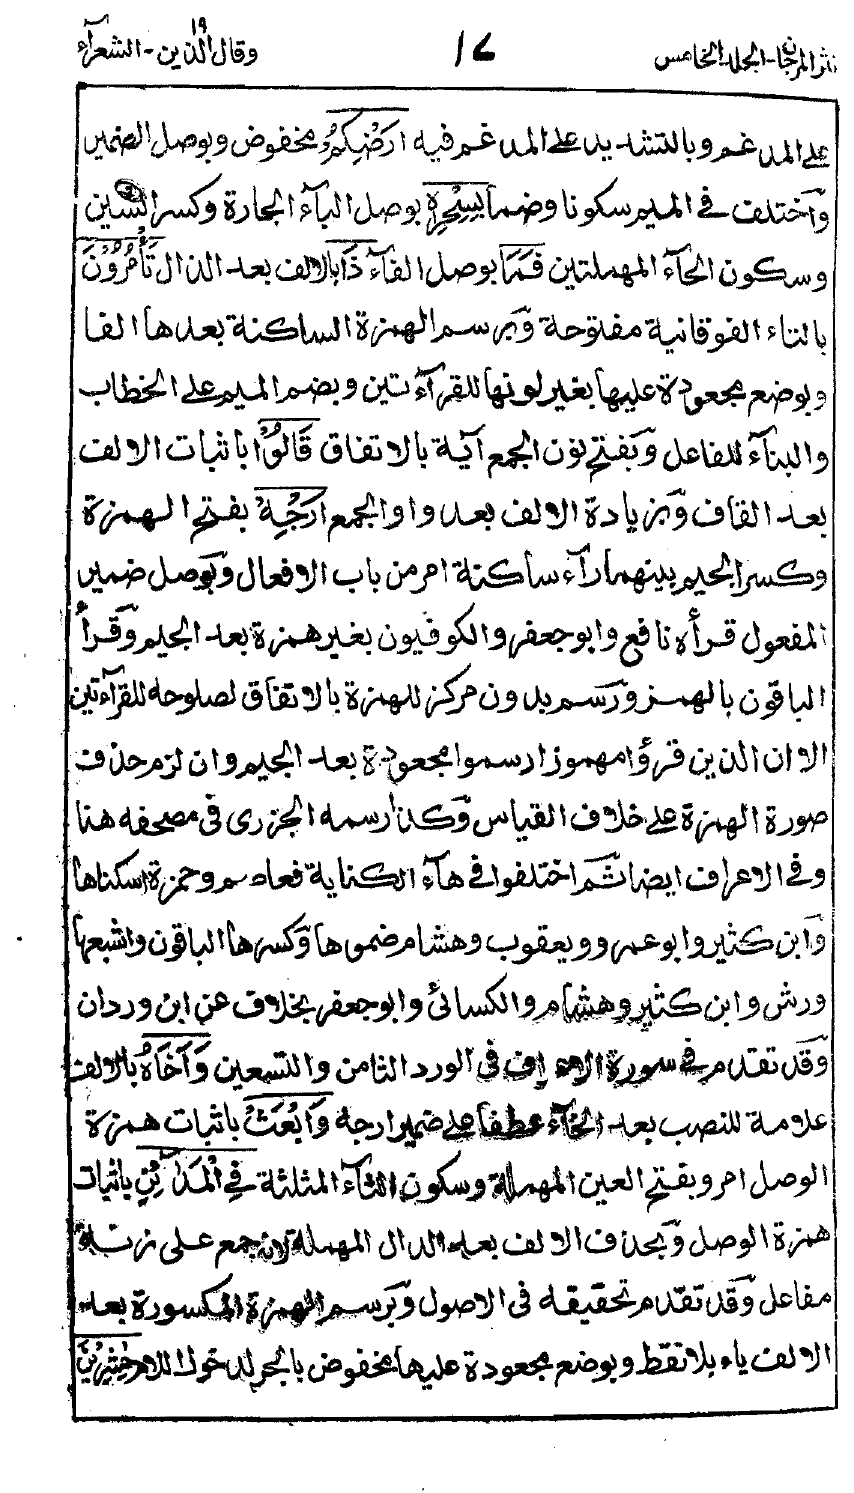 نثر المرجان-الجلد الخامس ١٧ وقال الذين ١٩-الشعرآء
على المدغم وبالتشديد على المدغم فيه اَرْضِكُمْ مخفوض وبوصل الضمير
وٓاختلف فى الميم سكونا وضما بِسِحْرِهٖ بوصل البآء الجارة وكسر السين
وسكون الحآء المهملتين فَمَا بوصل الفآء ذَا بالالف بعد الذال تَأْمُرُوْنَ
بالتاء الفوقانية مفتوحة وٓبرسم الهمزة الساكنة بعدها الفا
وبوضع مجعودة عليها بغير لونها للقرآءتين وبضم الميم على الخطاب
والبنآء للفاعل وٓبفتح نون الجمع آية بالاتفاق قَالُوْٓا باثبات الالف
بعد القاف وٓبزيادة الالف بعد واو الجمع اَرْجِهْ بفتح الهمزة
وكسر الجيم بينهما رآء ساكنة امر من باب الافعال وٓبوصل ضمير
المفعول قرأه نافع وابو جعفر والكوفيون بغير همزة بعد الجيم وٓقرأ
الباقون بالهمز ورسم بدون مركز للهمزة بالاتفاق لصلوحه للقرآءتين
الا ان الذين قرؤا مهموزا رسموا مجعودة بعد الجيم وان لزم حذف
صورة الهمزة على خلاف القياس وٓكذا رسمه الجزرى فى مصحفه هنا
وفى الاعراف ايضا ثم اختلفوا فى هآء الكناية فعاصم وحمزة اسكناها
وٓابن كثير وابو عمرو ويعقوب وهشام ضموها وٓكسرها الباقون واشبعها
ورش وابن كثير وهشام والكسائى وابو جعفر بخلاف عن ابن وردان
وٓقد تقدم فى سورة الاعراف فى الورد الثامن والتسعين وَاَخَاهُ بالالف
علامة للنصب بعد الخآء عطفا على ضمير ارجه وَابْعَثْ باثبات همزة
الوصل امر وبفتح العين المهملة وسكون الثآء المثلثة فِى الْمَدَآئِنِ باثبات
همزة الوصل وٓبحذف الالف بعد الدال المهملة لانه جمع على زنة
مفاعل وٓقد تقدم تحقيقه فى الاصول وٓبرسم الهمزة المكسورة بعد
الالف ياء بلا نقط وبوضع مجعودة عليها مخفوض بالجر لدخول اللام حٰشِرِيْنَ